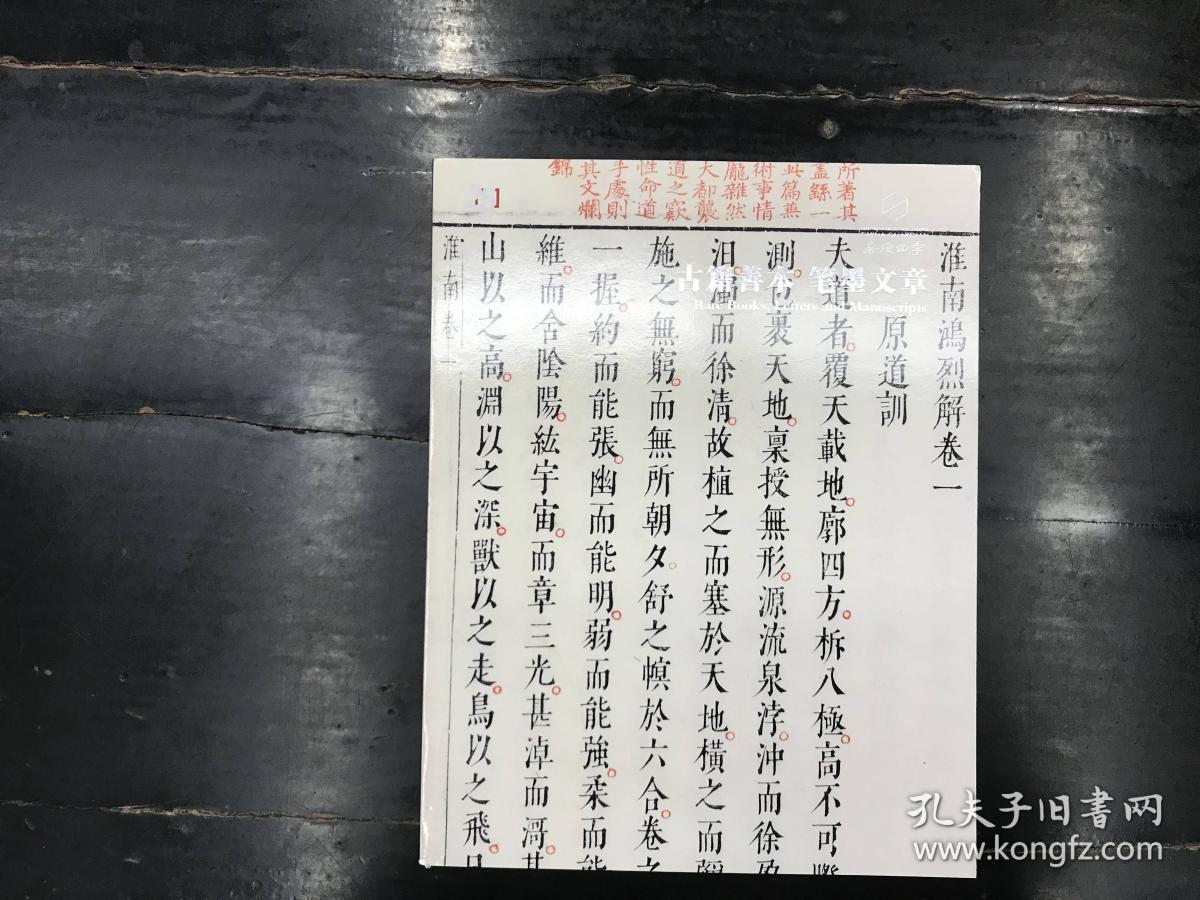 所著其
盖繇一
此篇兼
術事情
龐雜然
大都襲
道之竅
性命道
手處則
其文爛
錦
古籍善本 笔墨文章
Rare Books, Letters and Manuscripts
淮南鴻烈解卷一
原道訓
夫道者覆天載地。廓四方。柝八極。高不可
測。包裹天地。稟授無形。源流泉浡。沖而徐
汩。而徐清。故植之而塞於天地。橫之而
施之無窮。而無所朝夕。舒之幎於六合。卷
一握。約而能張。幽而能明。弱而能強。柔而能
維。而含陰陽。紘宇宙。而章三光。甚淖而滒。甚
山以之高。淵以之深。獸以之走。鳥以之飛。日
淮南卷一
孔夫子旧書网
www.kongfz.com